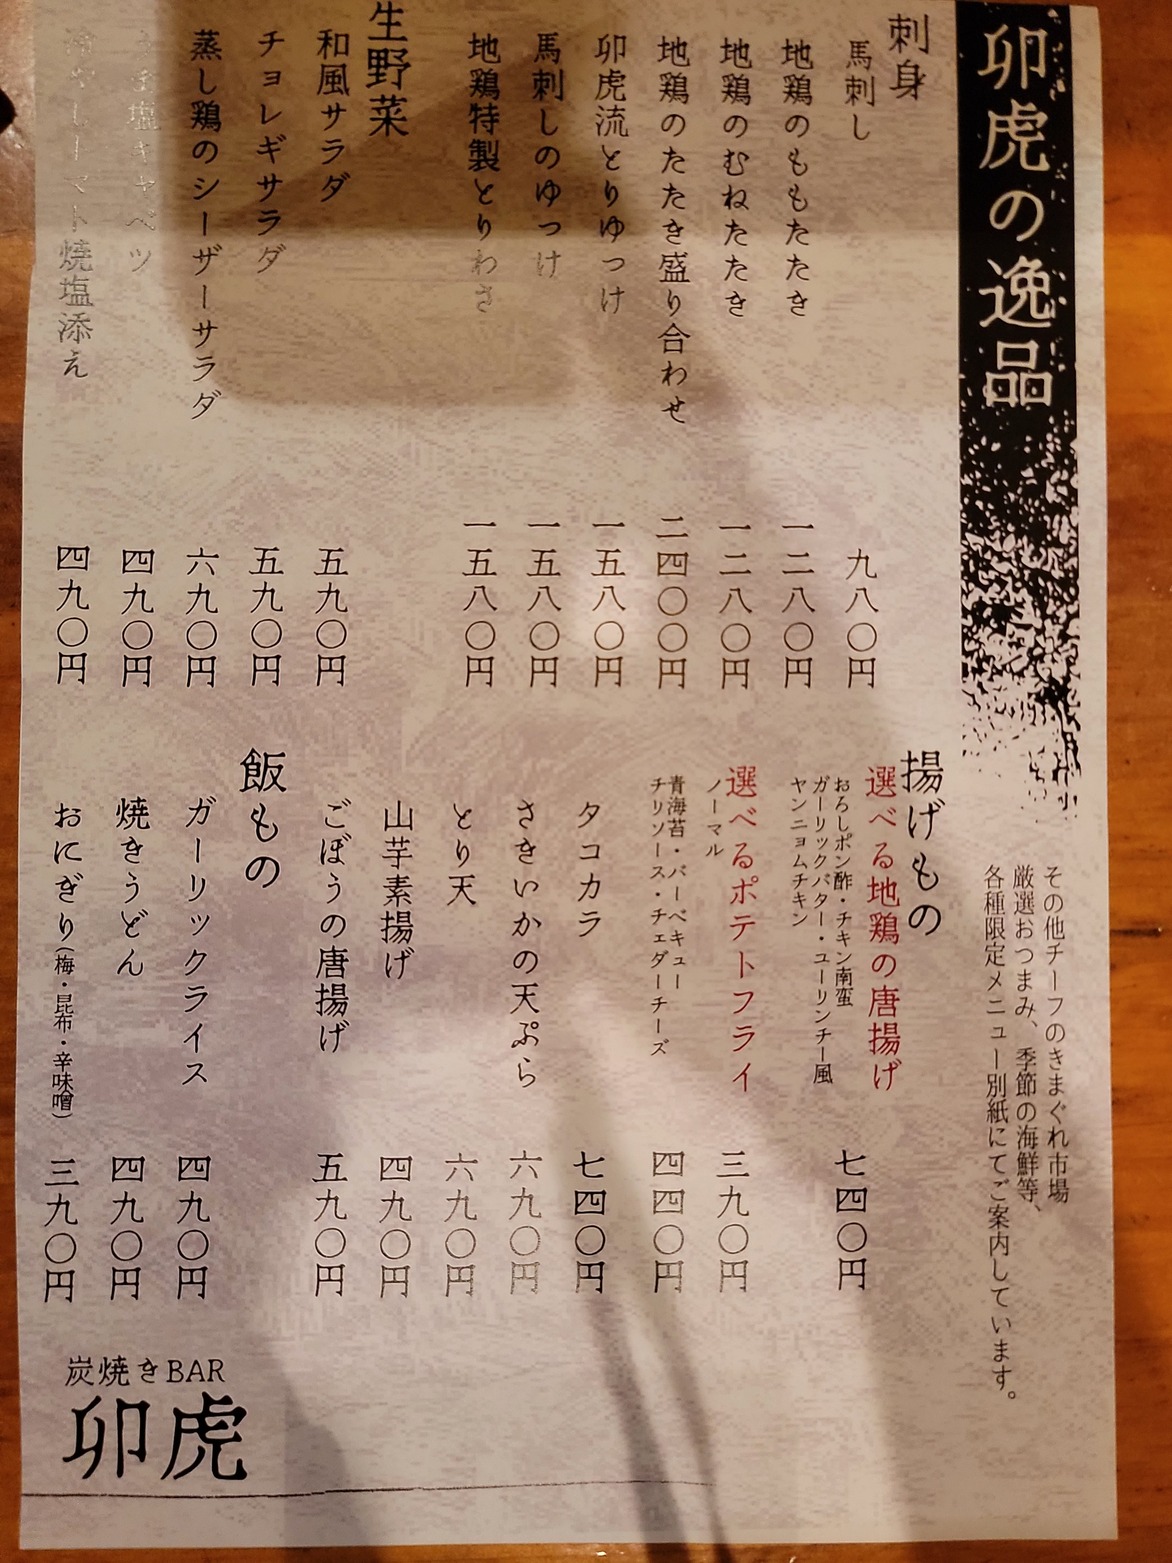 卯虎の逸品
その他チーフのきまぐれ市場
厳選おつまみ、季節の海鮮等、
各種限定メニュー別紙にてご案内しています。
刺身
馬刺し 九八〇円
地鶏のももたたき 一二八〇円
地鶏のむねたたき 一二八〇円
地鶏のたたき盛り合わせ 二四〇〇円
卯虎流とりゆっけ 一五八〇円
馬刺しのゆっけ 一五八〇円
地鶏特製とりわさ 一五八〇円
生野菜
和風サラダ 五九〇円
チョレギサラダ 五九〇円
蒸し鶏のシーザーサラダ 六九〇円
塩キャベツ 四九〇円
冷やしトマト焼塩添え 四九〇円
揚げもの
選べる地鶏の唐揚げ 七四〇円
おろしポン酢・チキン南蛮
ガーリックバター・ユーリンチー風
ヤンニョムチキン
選べるポテトフライ
ノーマル 三九〇円
青海苔・バーベキュー
チリソース・チェダーチーズ 四四〇円
タコカラ 七四〇円
さきいかの天ぷら 六九〇円
とり天 六九〇円
山芋素揚げ 四九〇円
ごぼうの唐揚げ 五九〇円
飯もの
ガーリックライス 四九〇円
焼きうどん 四九〇円
おにぎり(梅・昆布・辛味噌) 三九〇円
炭焼きBAR
卯虎